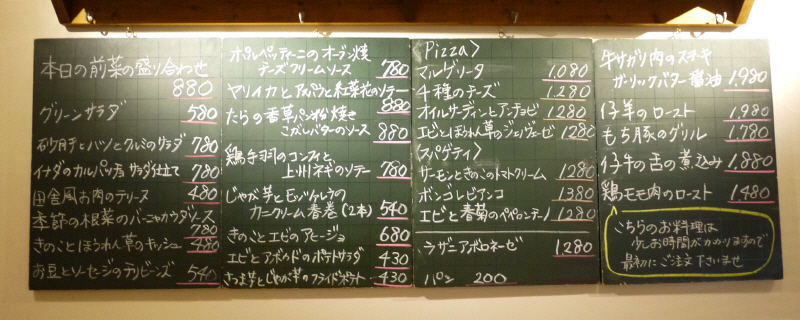 本日の前菜の盛り合わせ
880
グリーンサラダ 580
砂肝とハツとクルミのサラダ 780
イナダのカルパッチョ サラダ仕立て 780
田舎風お肉のテリーヌ 480
季節の根菜のバーニャカウダソース
780
きのことほうれん草のキッシュ 480
お豆とソーセージのチリビーンズ 540
ポルペッティーニのオーブン焼
チーズクリームソース 780
マリイカと と紅菜花のソテー
880
たらの香草パン粉焼き
こがしバターのソース 880
鶏手羽のコンフィと、
上州ネギのソテー 780
じゃが芋とモッツァレラの
カニクリーム春巻(2本) 540
きのことエビのアヒージョ 680
エビとアボカドのポテトサラダ 430
さつま芋とじゃが芋のフライドポテト 430
Pizza〉
マルゲリータ 1,080
4種のチーズ 1,280
オイルサーディンとアンチョビ 1280
エビとほうれん草のジェノヴェーゼ 1280
スパゲティ〉
サーモンときのこのトマトクリーム 1,280
ボンゴレビアンコ 1380
エビと春菊のペペロンチーノ 1280
ラザニアボロネーゼ 1,280
パン 200
牛サガリ肉のステーキ
ガーリックバター醤油 1,980
仔羊のロースト 1,980
もち豚のグリル 1,780
仔牛の舌の煮込み 1,880
鶏モモ肉のロースト 1,480
こちらのお料理は
少しお時間がかかりますので
最初にご注文下さいませ